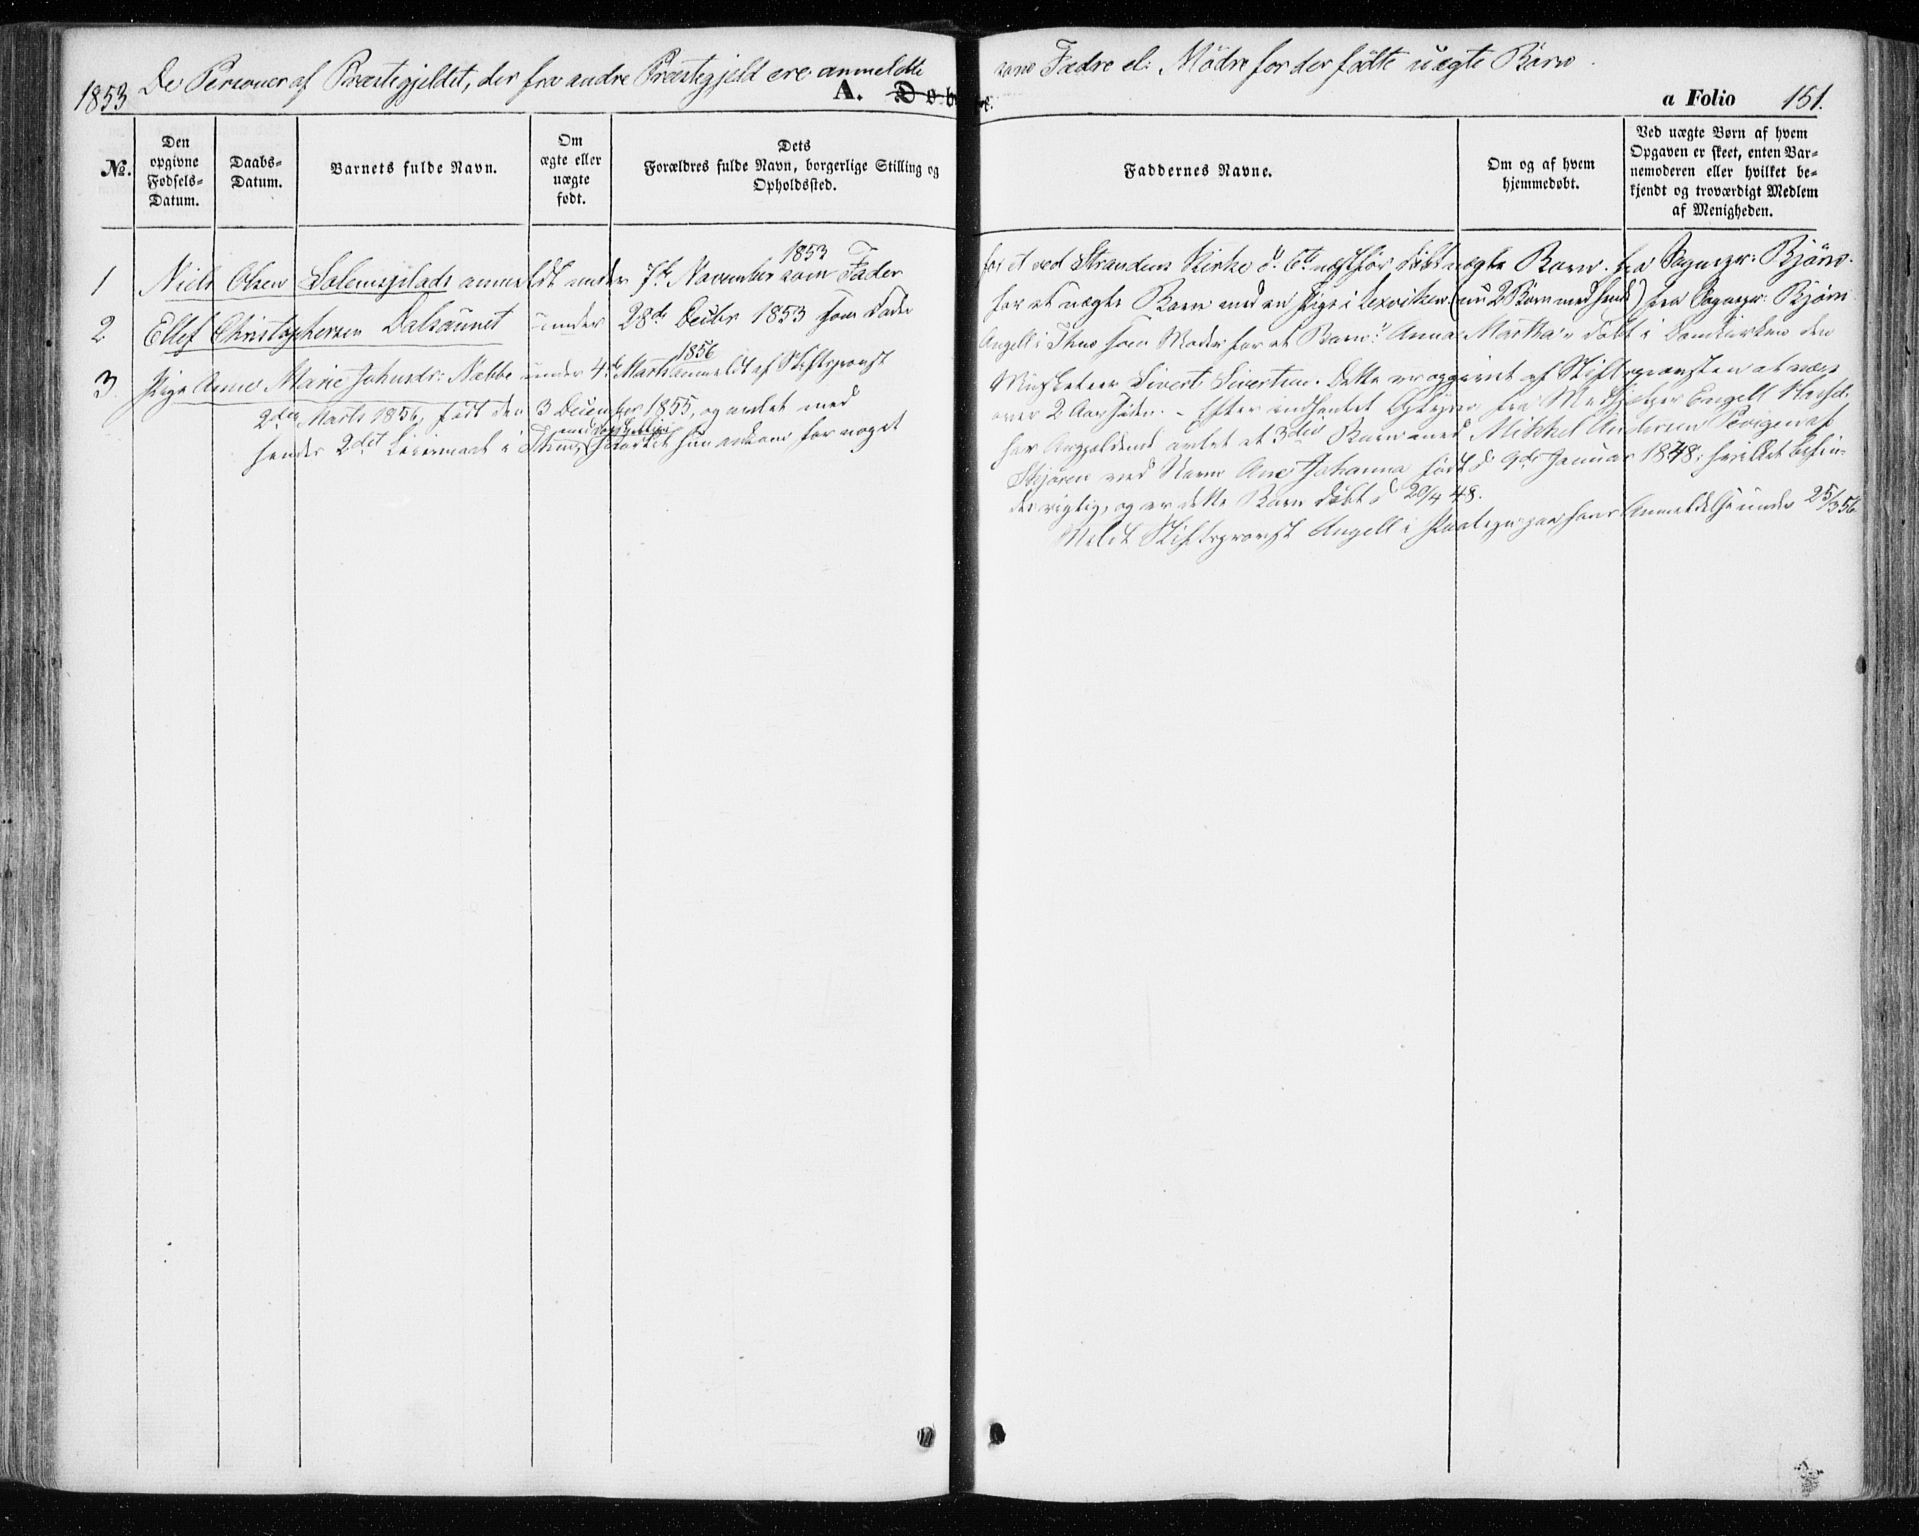 1853 De Personer af Præstegjeldet, der fra andre Præstegjeld ere anmeldte
som Fædre el: Mødre for der fødte uægte Børn.
A. Døbte.
a Folio 151.
No.
Den opgivne Fødsels-Datum.
Daabs-Datum.
Barnets fulde Navn.
Om ægte eller uægte født.
Dets Forældres fulde Navn, borgerlige Stilling og Opholdssted.
Faddernes Navne.
Om og af hvem hjemmedøbt.
Ved uægte Børn af hvem
Opgaven er skeet, enten Bar-
nemoderen eller hvilket be-
kjendt og troværdigt Medlem
af Menigheden.
1853
1 Niels Olsen anmeldt under 7de November som Fader
for et ved Strandens Kirke døbt uægte Barn. fra Sognepr: Bjørn.
2 Ellef Christophersen Dalsaunet under 28de Decbr 1853 som Fader
for et uægte Barn med en Pige i Lexviken (nu 2 Børn med hende) fra Sognepr: Bjørn
1856
3. Pige Anne Marie Johnsdr: Næbbe under 4de Marts Anmeldt af Stiftsprovst
Angell i Thm som Moder for et Barn: Anna Martha døbt i Domkirken den
2den Marts 1856, født den 3 December 1855, og avlet med
Musketeer Sivert Sivertsen. Dette er opgivet af Stiftsprovsten at være
hendes 2det Leiermaal i Thm, hun ankom for noget
over 2 Aar siden. – Efter indhentet fra Engell
har avlet et 3die Barn med Mikkel Andersen
med Navn Ane Johanna født d 9de Januar 1848; hvilket befin-
des rigtig, og er dette Barn døbt d 20/4 48.
Meldt Stiftsprovst Angell i paa hans Anmeldelse under 25/3 56